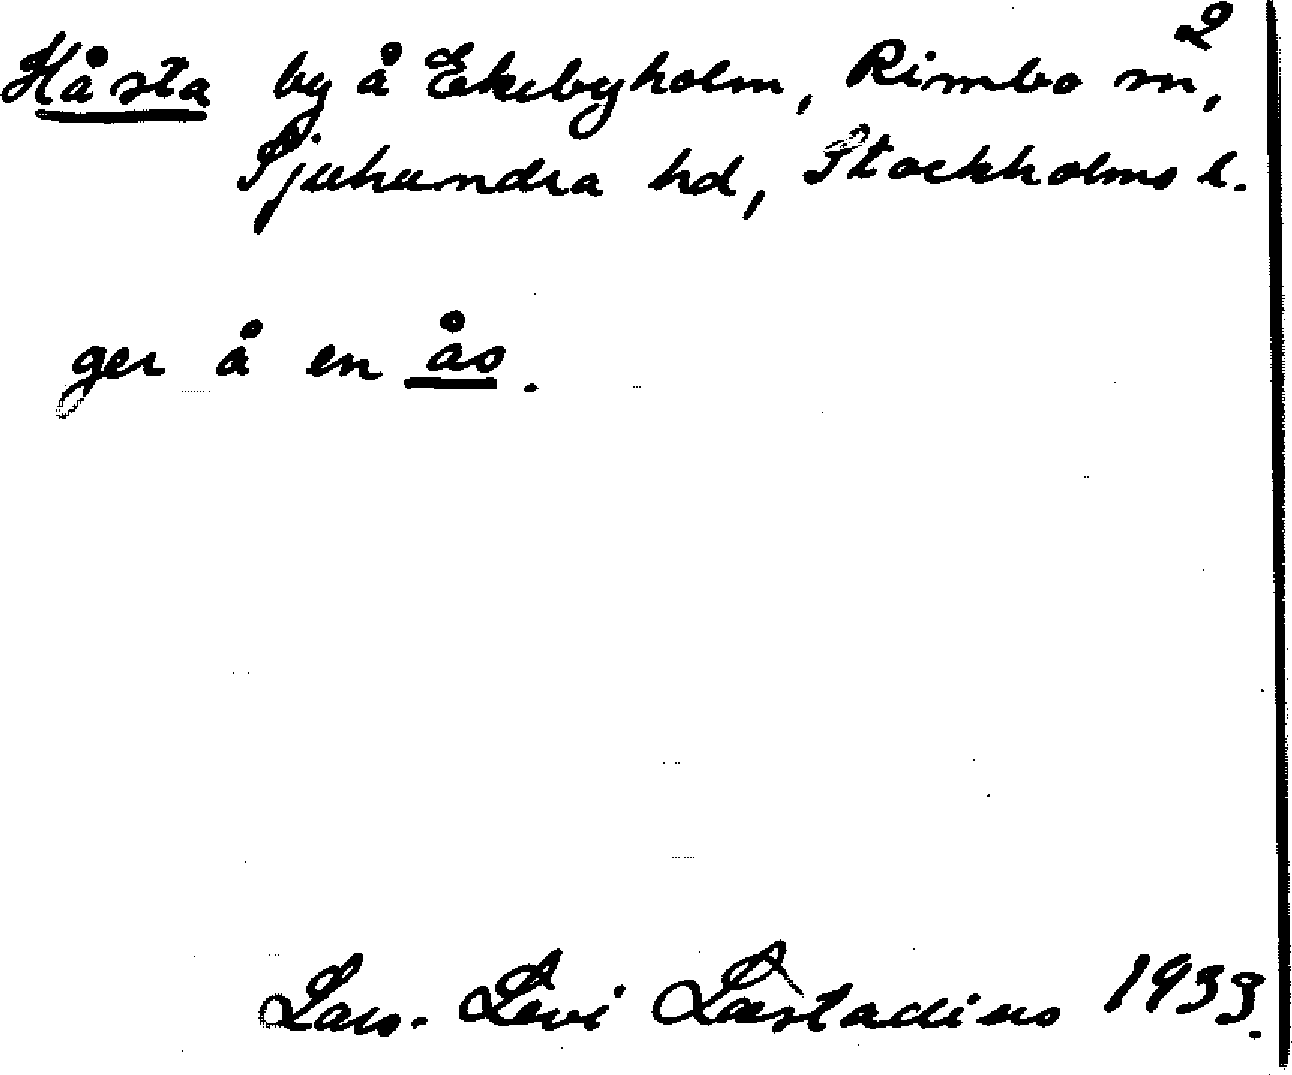 2
Håsta by å Ekebyholm, Rimbo sn,
Sjuhundra hd, Stockholms l.
ger å en ås.
Lars-Levi Læstadius 1933.